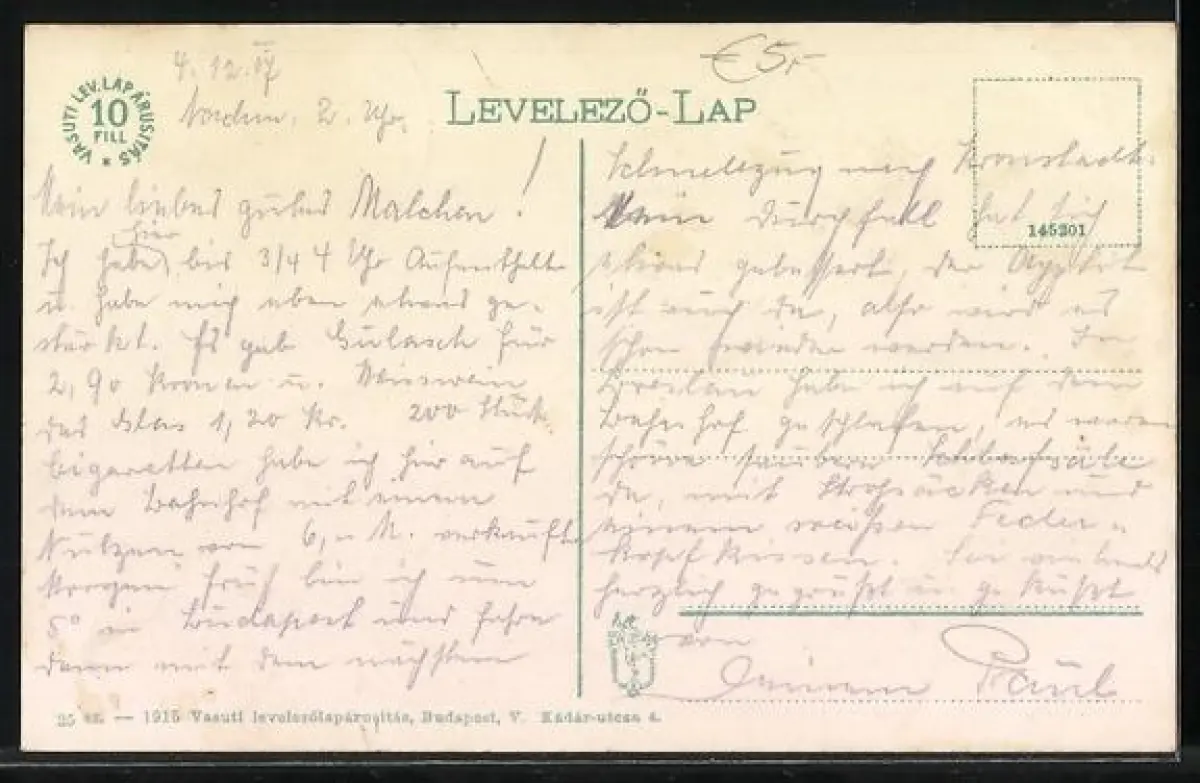 €5,-
4. 12. 17
Nachm. 2. Uhr.
VASUTI LEV. LAP ÁRUSITÁS *
10
FILL
LEVELEZŐ-LAP
145201
Mein liebes gutes Malchen!
hier
Ich habe bis 3/4 4 Uhr Aufenthalt
u. habe mich eben etwas ge-
stärkt. Es gab Gulasch für
2,90 Kronen u. Weisswein
das Glas 1,20 Kr. 200 Stück
Cigaretten habe ich hier auf
dem Bahnhof mit einem
Nutzen von 6,- M. verkauft
Morgen früh bin ich um
5° in Budapest und fahre
dann mit dem nächsten
Schnellzug nach Kronstadt.
Mein Durchfall hat sich
etwas gebessert, der Appetit
ist auch da, also wird es
schon wieder werden. In
Breslau habe ich auf dem
Bahnhof geschlafen, es waren
schöne saubere Schlafsäle
da, mit Strohsäcken und
einem weissen Feder-
kopfkissen. Sei vielmals
herzlich gegrüßt u. geküßt
von
Deinem Paul
25 sz. — 1915 Vasuti levelezőlapárusitás, Budapest, V. Kádár-utcsa 4.